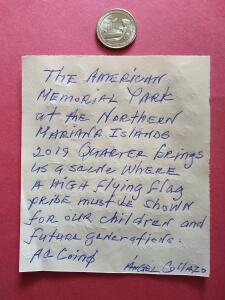 The American
Memorial Park
at the Northern
Mariana Islands
2019 Quarter brings
us a scene where
a high flying flag
pride must be shown
for our children and
future generations.
AC Coin¢
Angel Collazo